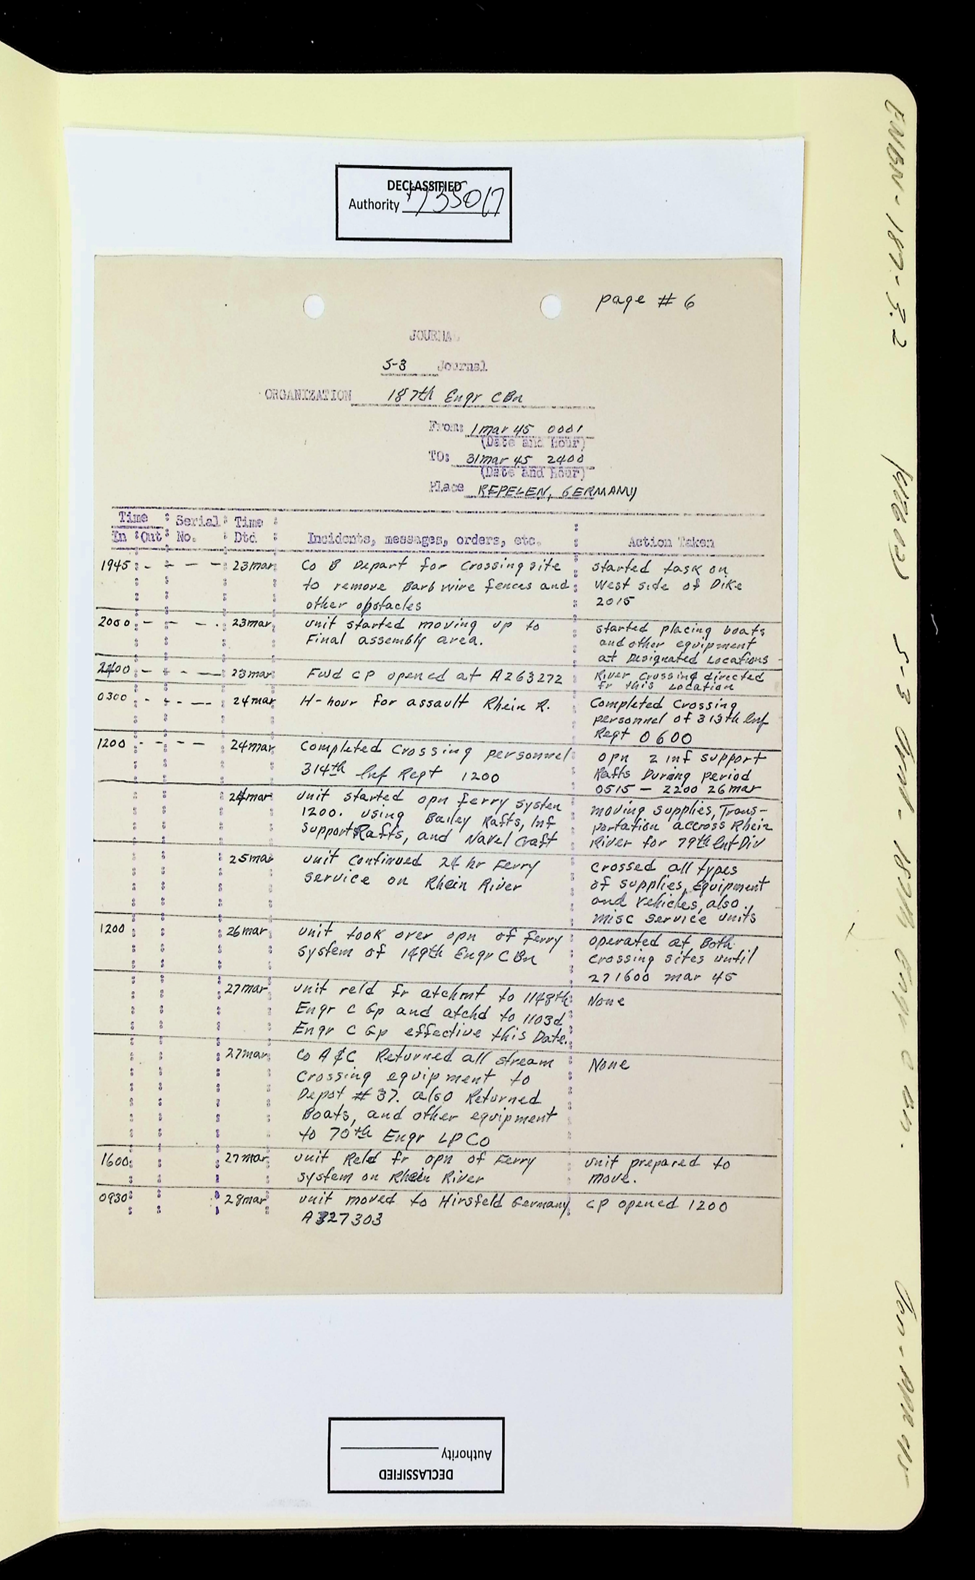 DECLASSIFIED
Authority 735017
page # 6
JOURNAL
S-3 Journal
ORGANIZATION 187th Engr C Bn
From: 1 Mar 45 0001
(Date and Hour)
TO: 31 Mar 45 2400
(Date and Hour)
Place REPELEN, GERMANY
Time : Serial : Time
In : Out : No. : Dtd : Incidents, messages, orders, etc. : Action Taken
1945 - - - - 23 mar Co B Depart for Crossing site
to remove Barb wire fences and
other obstacles
started task on
West side of Dike
2015
2000 - - - - 23 mar unit started moving up to
Final assembly area.
started placing boats
and other equipment
at Designated Locations
2400 - - - - 23 mar Fwd CP opened at A263272
River Crossing directed
fr this Location
0300 - - - - 24 mar H-hour for assault Rhein R.
Completed Crossing
personnel of 313th Inf
Regt 0600
1200 - - - - 24 mar Completed Crossing personnel
314th Inf Regt 1200
opn 2 inf support
Rafts During period
0515 - 2200 26 mar
24 mar unit started opn ferry system
1200. using Bailey Rafts, Inf
Support Rafts, and Navel Craft
moving supplies, Trans-
portation accross Rhein
River for 79th Inf Div
25 mar unit continued 24 hr Ferry
service on Rhein River
crossed all types
of supplies, equipment
and vehicles, also
misc service units
1200 26 mar unit took over opn of ferry
system of 149th Engr C Bn
operated at Both
crossing sites until
271600 mar 45
27 mar unit reld fr atchmt to 1148th
Engr C Gp and atchd to 1103d
Engr C Gp effective this Date.
None
27 mar Co A & C Returned all stream
Crossing equipment to
Depot # 37. also Returned
Boats, and other equipment
to 70th Engr LP Co
None
1600 27 mar unit Reld fr opn of Ferry
system on Rhein River
unit prepared to
move.
0930 28 mar unit moved to Hirsfeld Germany
A327303
CP opened 1200
DECLASSIFIED
Authority
ENBN-187-3.2
S-3 Jrnl - 187th Engr C Bn.
Jan-Apr 45